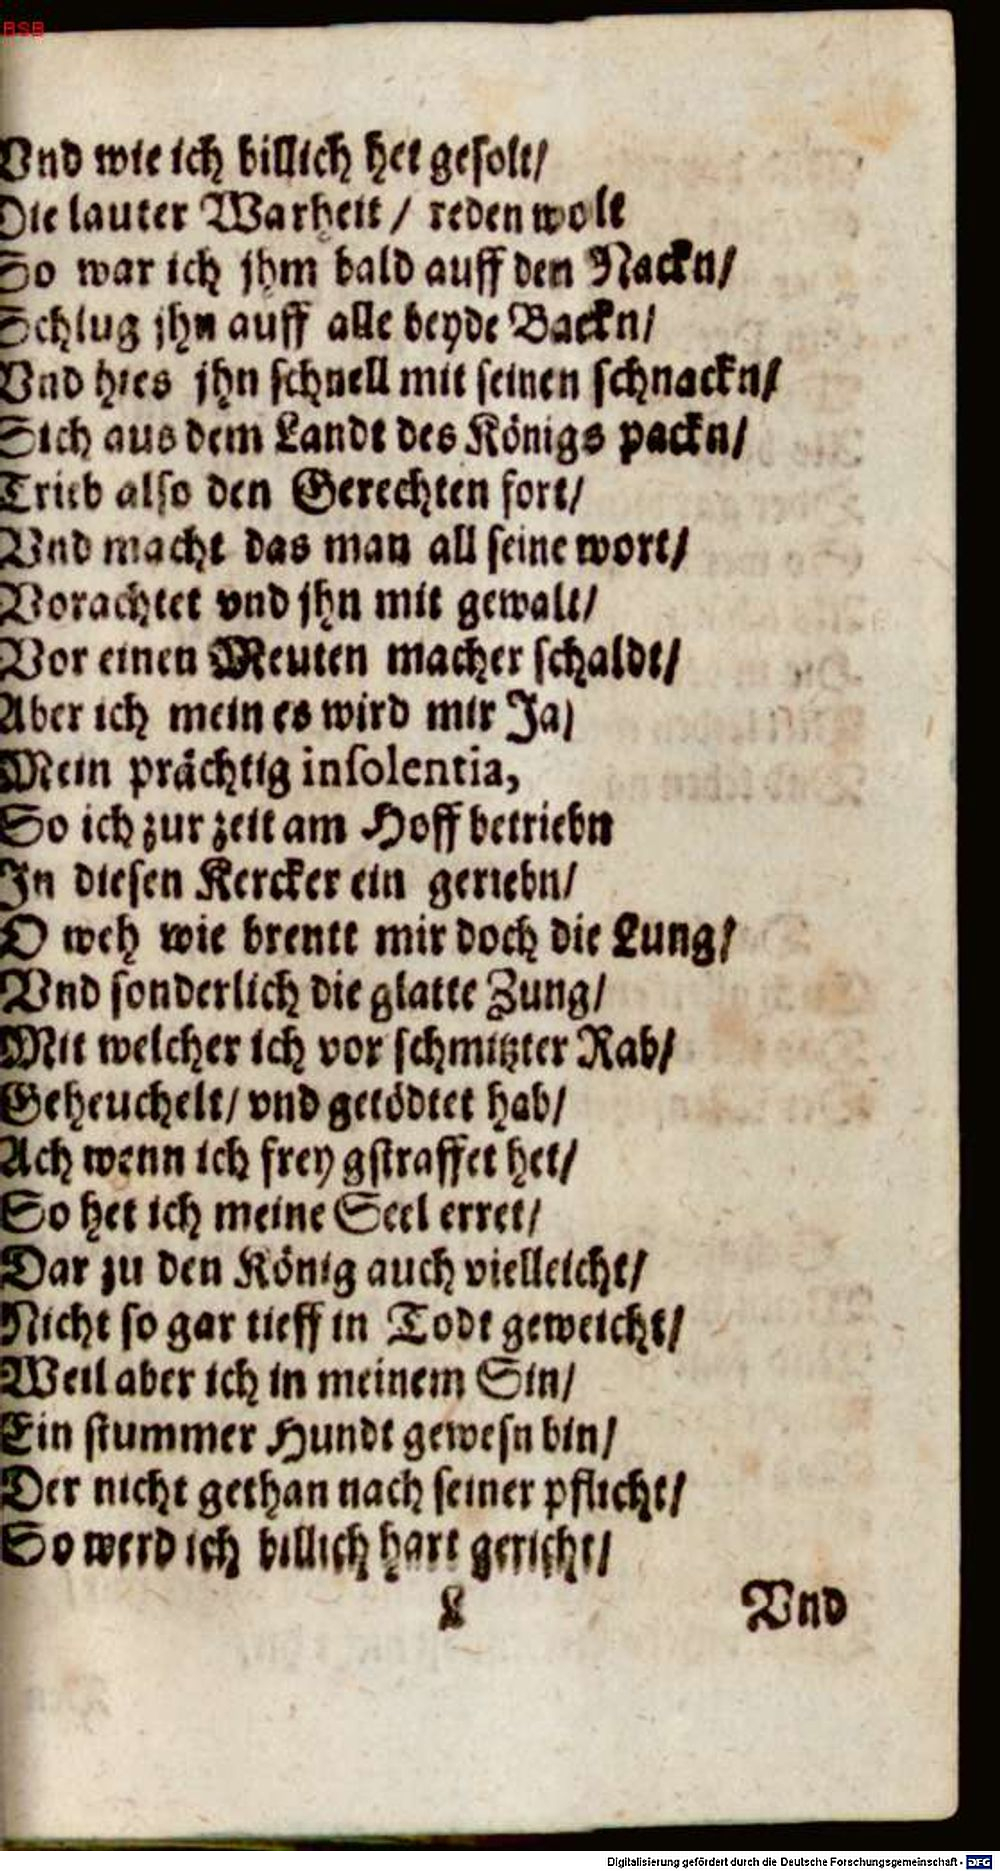 BSB
Vnd wie ich billich het gesolt/
Die lauter Warheit / reden wolt
So war ich jhm bald auff den Nackn/
Schlug jhn auff alle beyde Backn/
Vnd hies jhn schnell mit seinen schnackn/
Sich aus dem Landt des Königs packn/
Trieb also den Gerechten fort/
Vnd macht das man all seine wort/
Vorachtet vnd jhn mit gewalt/
Vor einen Meuten macher schaldt/
Aber ich mein es wird mir Ja/
Mein prächtig insolentia,
So ich zur zeit am Hoff betriebn
In diesen Kercker ein geriebn/
O weh wie brentt mir doch die Lung/
Vnd sonderlich die glatte Zung/
Mit welcher ich vor schmitzter Rab/
Geheuchelt/ vnd getödtet hab/
Ach wenn ich frey gstraffet het/
So het ich meine Seel erret/
Dar zu den König auch vielleicht/
Nicht so gar tieff in Todt geweicht/
Weil aber ich in meinem Sin/
Ein stummer Hundt gewesn bin/
Der nicht gethan nach seiner pflicht/
So werd ich billich hart gericht/
L Vnd
Digitalisierung gefördert durch die Deutsche Forschungsgemeinschaft - DFG